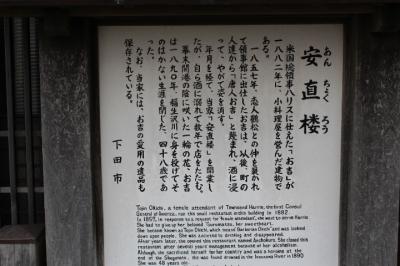 安直楼
あん ちょく ろう
米国総領事ハリスに仕えた「お吉」が
一八八二年に、小料理屋を営んだ建物で
ある。
一八五七年、恋人鶴松との仲を裂かれ
て領事館に出仕したお吉は、以後、町の
人達から「唐人お吉」と蔑まれ、酒に浸
って、やがて姿を消す。
年月を経て、当家「安直楼」を開業し
たが、自ら酒に溺れて数年で店をたたむ。
幕末開港の陰に咲いた一輪の花、お吉
は一八九〇年、稲生沢川に身を投げてそ
のはかない生涯を閉じた。四十八歳であ
った。
なお、当家には、お吉の愛用の遺品も
保存されている。
下田市
Tojin Okichi, a female attendant of Townsend Harris, the first Consul
General of America, ran this small restaurant in this building in 1882.
In 1857, in response to a request for female attendant, she went to serve Harris.
She had to give up her beloved Tsurumatsu, her sweetheart.
She became known as Tojin Okichi, which means Barbarian Okichi and was looked
down upon people. She was addicted to drinking and disappeared.
After years later, she opened this restaurant named Anchokuro. She closed this
restaurant after several years management because of her alcoholism.
Although she sacrificed herself for her country and was a heroine at the
end of the Shogunate, she was found drowned in the Inouzawa River in 1890.
She was 48 years old.